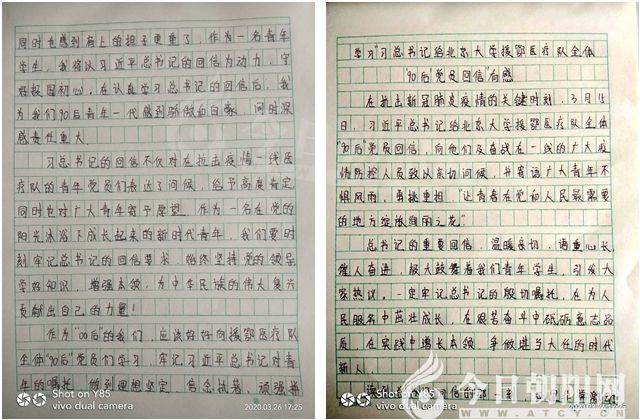 同时也感到肩上的担子更重了，作为一名青年
学生，我将以习近平总书记的回信为动力，守
好报国初心。在认真学习总书记的回信后，我
为我们90后青年一代感到骄傲和自豪，同时深
感责任重大。
习总书记的回信不仅对在抗击疫情一线医
疗队的青年党员们表达了问候，给予高度肯定
同时也对广大青年寄予厚望。作为一名在党的
阳光沐浴下成长起来的新时代青年，我们要时
刻牢记总书记的回信要求，始终坚持党的领导
学好知识，增强本领，为中华民族的伟大复兴
贡献出自己的力量！
作为"00后"的我们，应该好好向援鄂医疗队
全体"90后"党员们学习，牢记习近平总书记对青
年的嘱托，做到理想坚定，信念执着，顽强拼
Shot on Y85
vivo dual camera
2020.03.26 17:25
学习"习总书记给北京大学援鄂医疗队全体
"90后党员回信"有感
在抗击新冠肺炎疫情的关键时刻，3月15
日，习近平总书记给北京大学援鄂医疗队全体
"90后"党员回信，向他们及奋战在一线的广大疫
情防控人员致以亲切问候，并寄语广大青年不
惧风雨，勇挑重担，"让青春在党和人民最需要
的地方绽放绚丽之花"
总书记的重要回信，温暖亲切，语重心长
催人奋进，极大鼓舞着我们青年学生，引发大
家热议。一定牢记总书记的殷切嘱托，在为人
民服务中茁壮成长，在艰苦奋斗中砥砺意志品
质，在实践中增长本领，争做堪当大任的时代
新人。
Shot on Y85
vivo dual camera
今日朝阳网